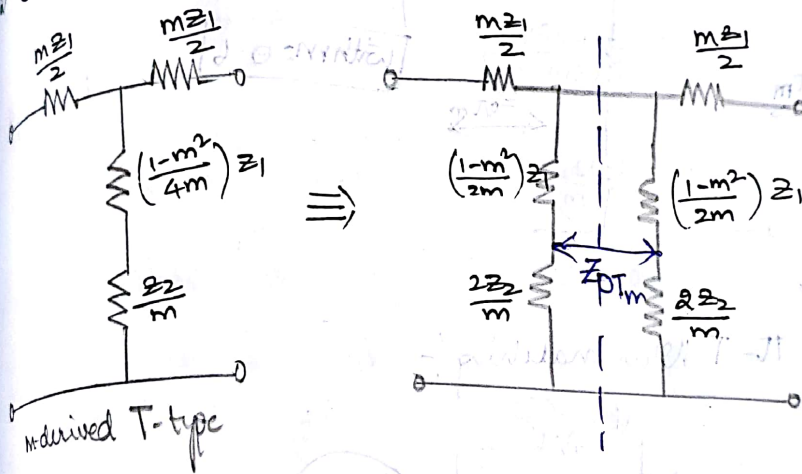 mz1/2
mz1/2
(1-m²/4m) z1
z2/m
m-derived T-type
⇒
mz1/2
mz1/2
(1-m²/2m) z1
(1-m²/2m) z1
ZPTm
2z2/m
2z2/m